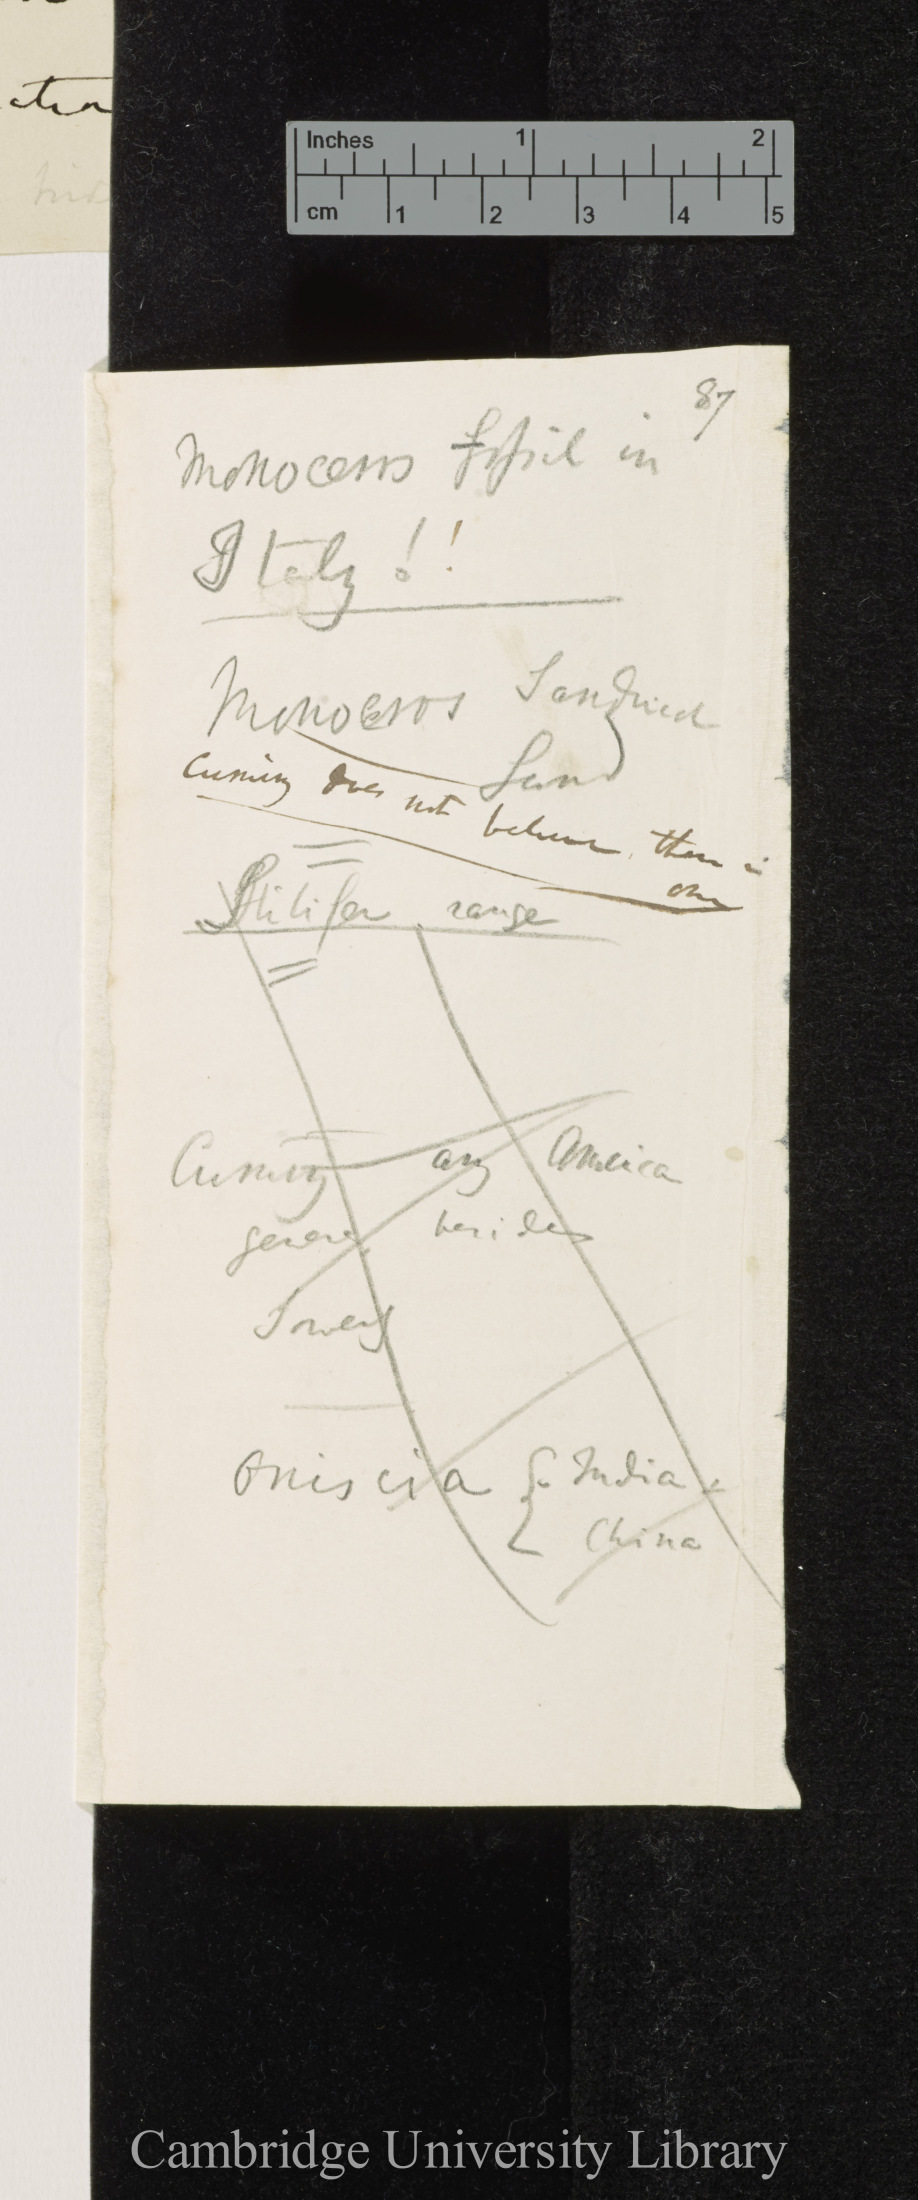 ation
Inches 1 2
cm 1 2 3 4 5
87
Monoceros fossil in
Italy!!
Monoceros Sandwich
Land
Cuming does not believe there is
one
Stilifer range
Cuming any America
genera besides
Sowerby
Oniscia { India
China
Cambridge University Library